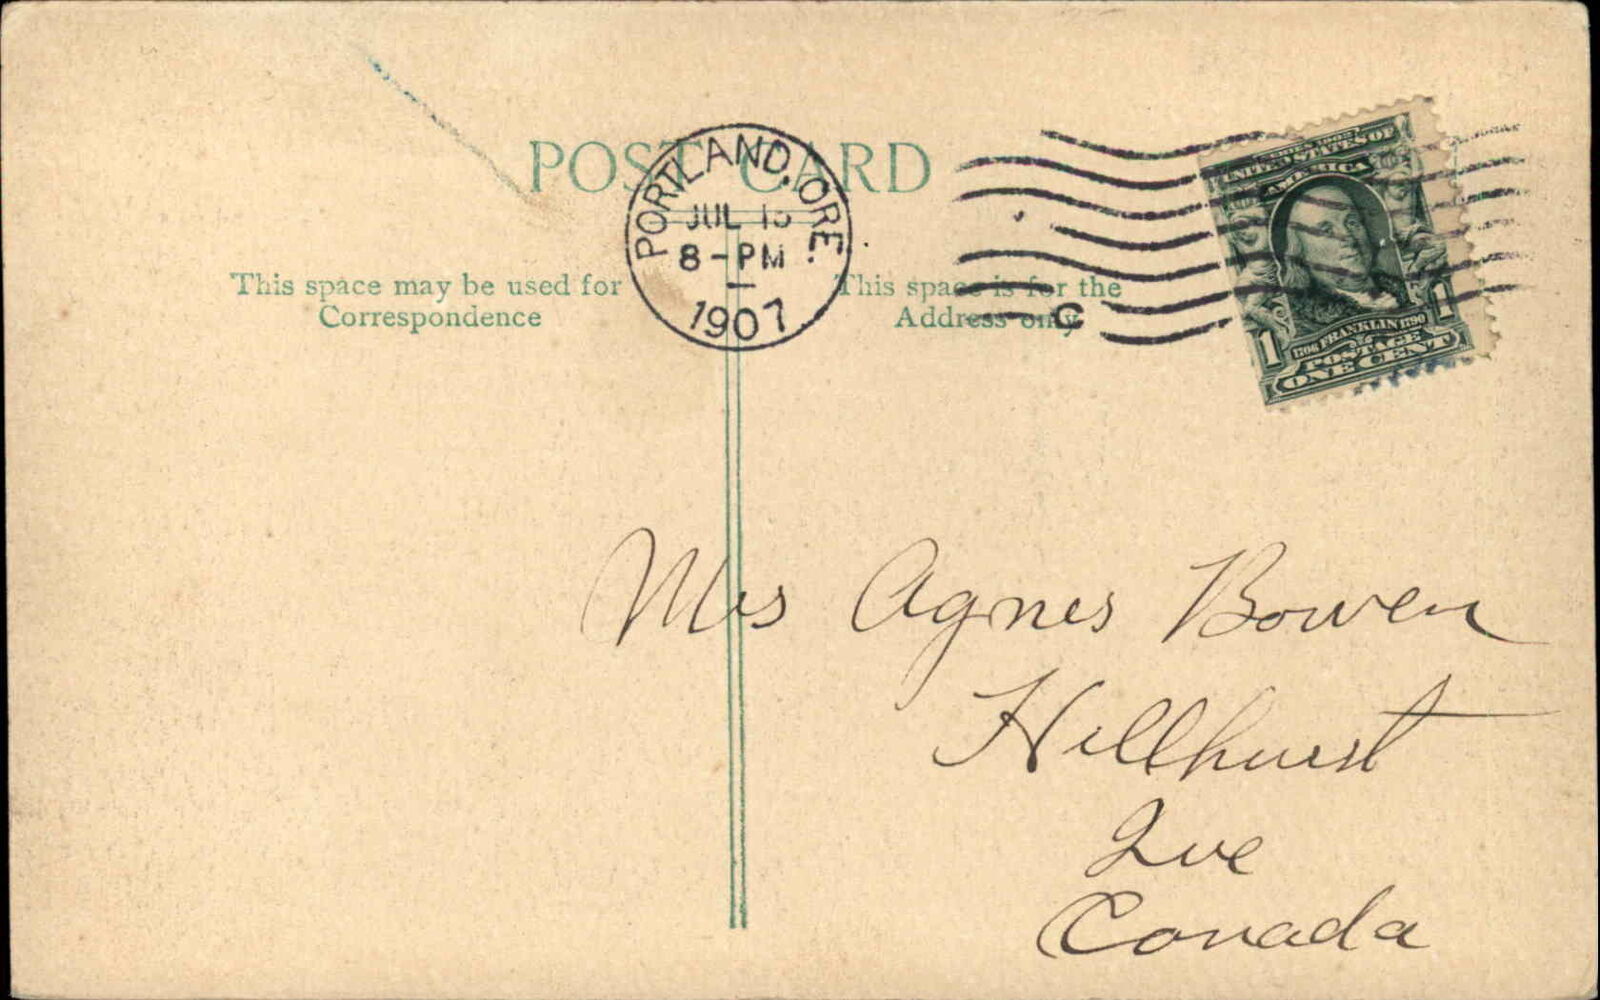 POST CARD
PORTLAND, ORE.
JUL 15
8-PM
1907
C
UNITED STATES OF
AMERICA
1706 FRANKLIN 1790
POSTAGE
1 1
ONE CENT
This space may be used for
Correspondence
This space is for the
Address only
Mrs Agnes Bowen
Hillhurst
Que
Canada